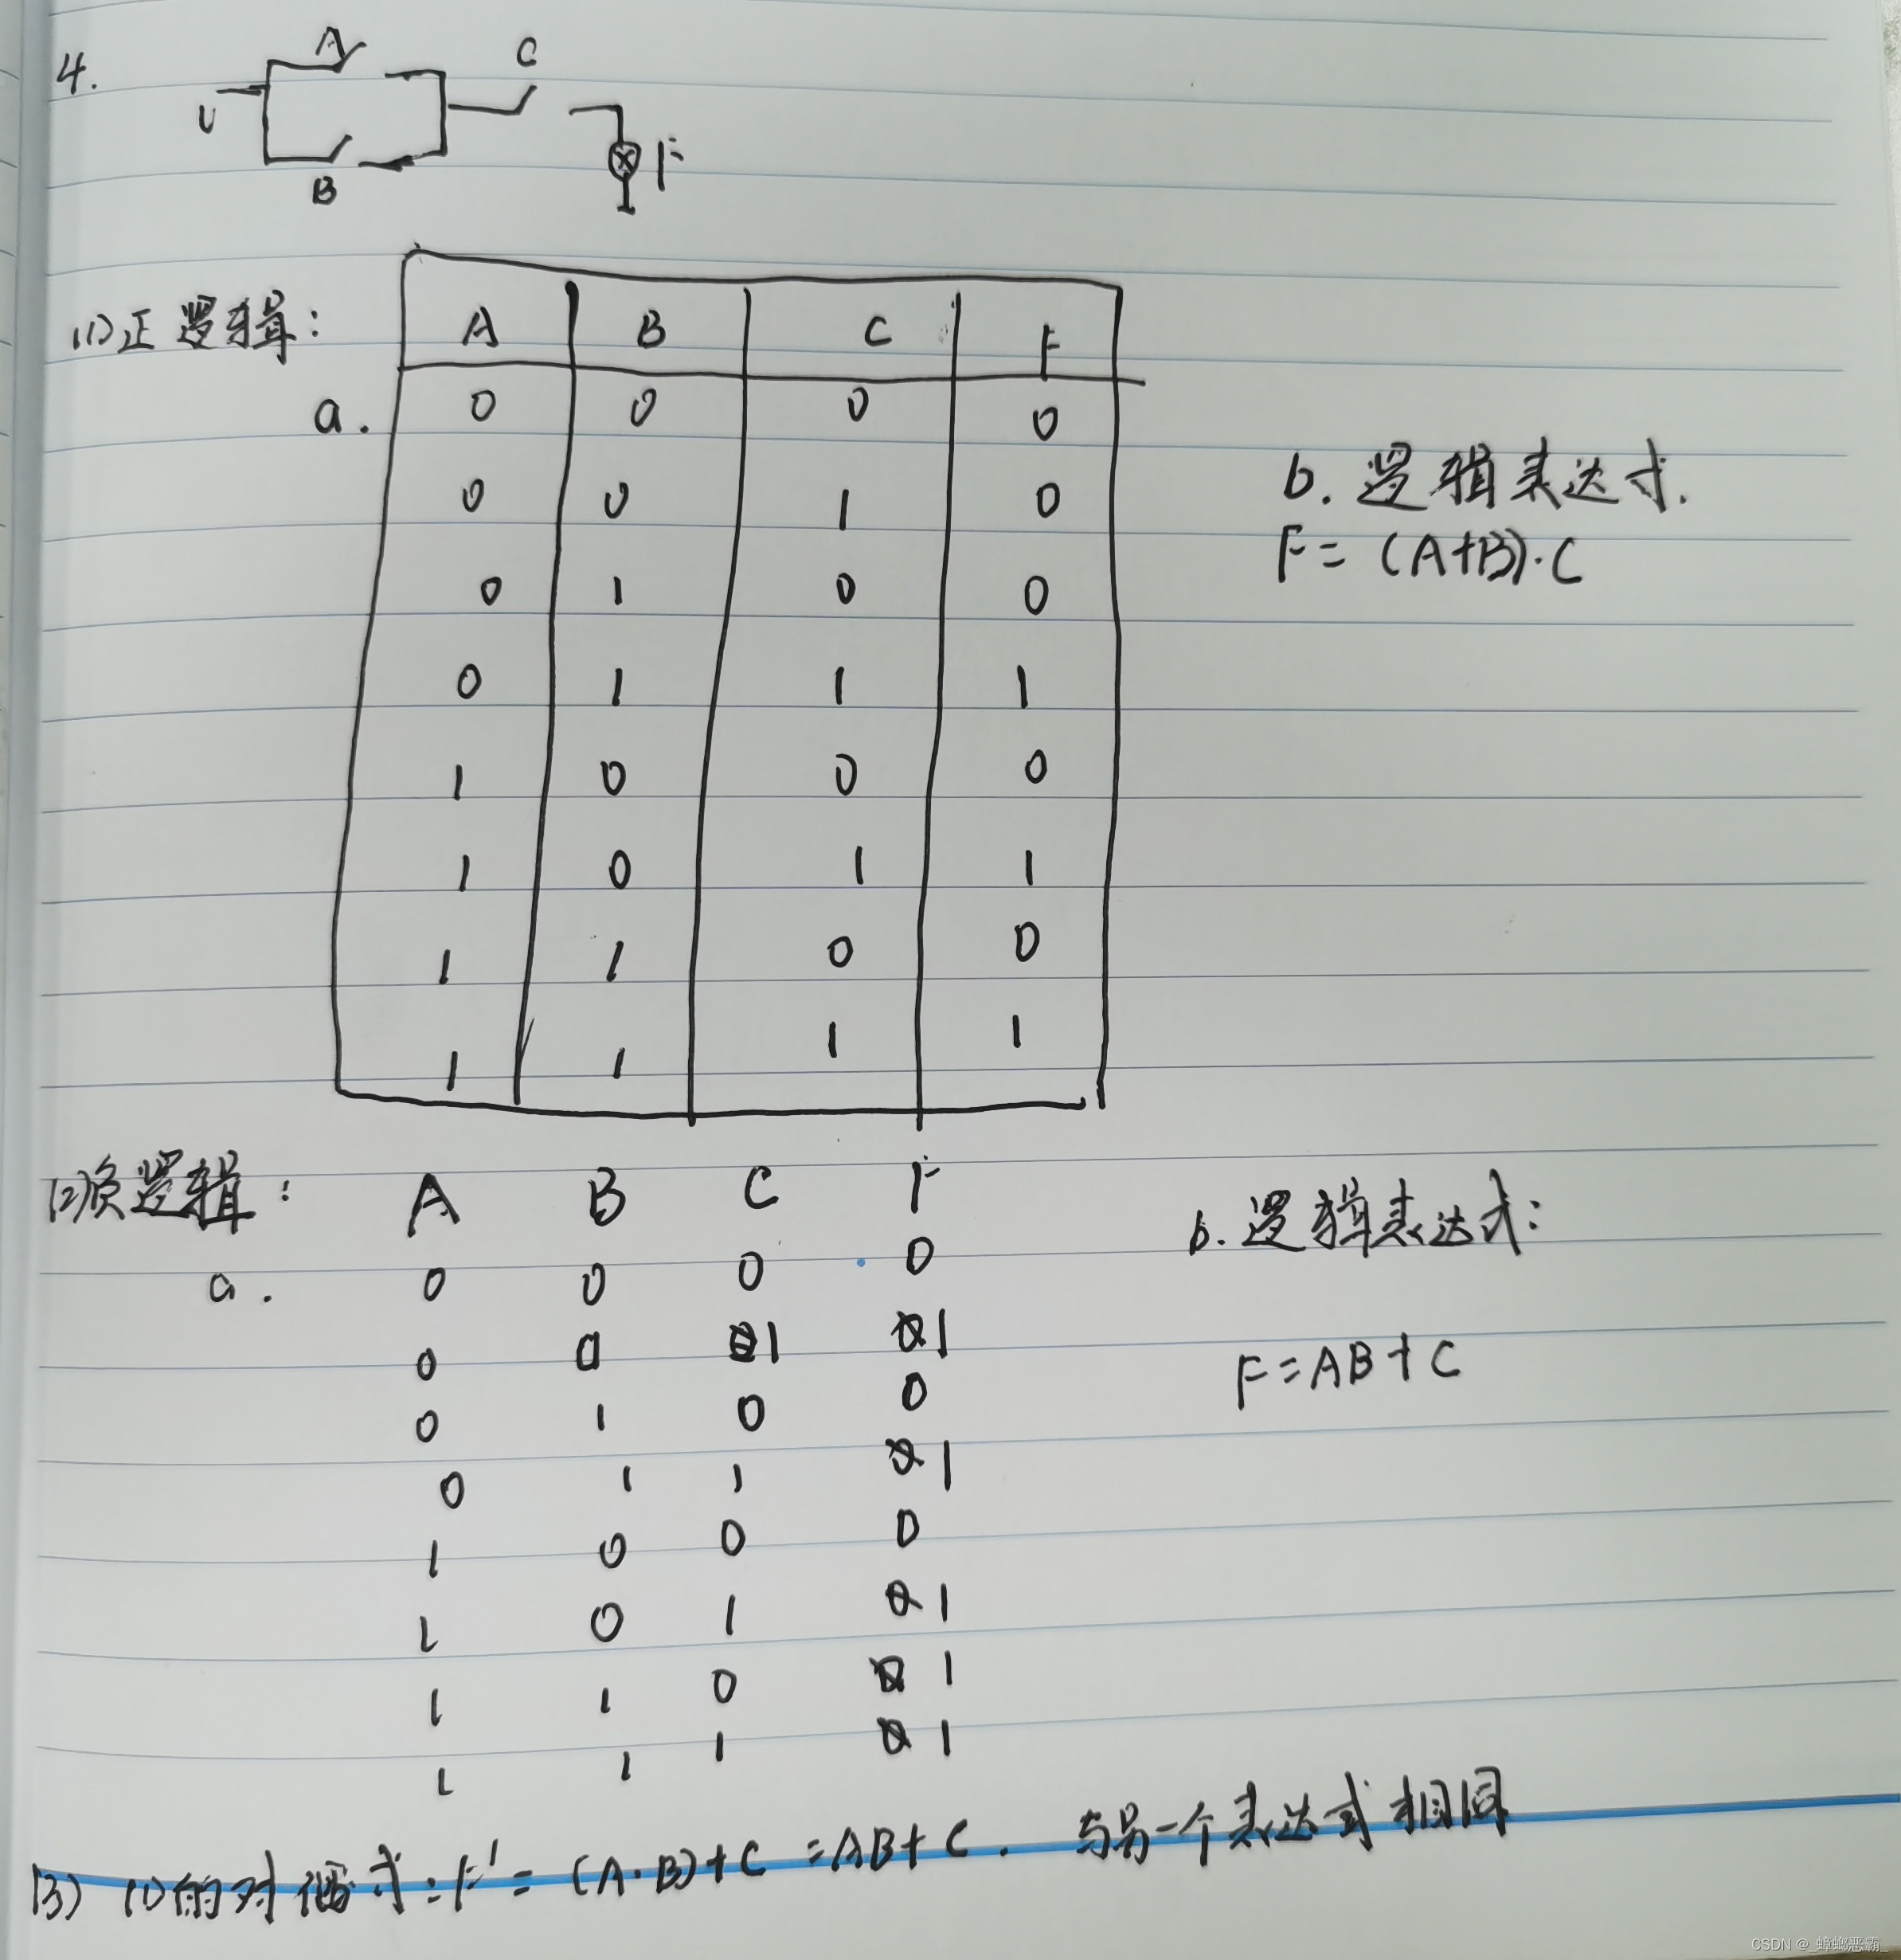 4.
A
C
U
F
B
(1)正逻辑:
A B C F
a. 0 0 0 0
0 0 1 0
0 1 0 0
0 1 1 1
1 0 0 0
1 0 1 1
1 1 0 0
1 1 1 1
b. 逻辑表达式.
F = (A+B)·C
(2)负逻辑: A B C F
a. 0 0 0 0
0 0 1 1
0 1 0 0
0 1 1 1
1 0 0 0
1 0 1 1
1 1 0 1
1 1 1 1
b. 逻辑表达式:
F = AB + C
(3) (1)的对偶式: F' = (A·B)+C = AB+C. 与另一个表达式相同
CSDN @_蟑螂恶霸